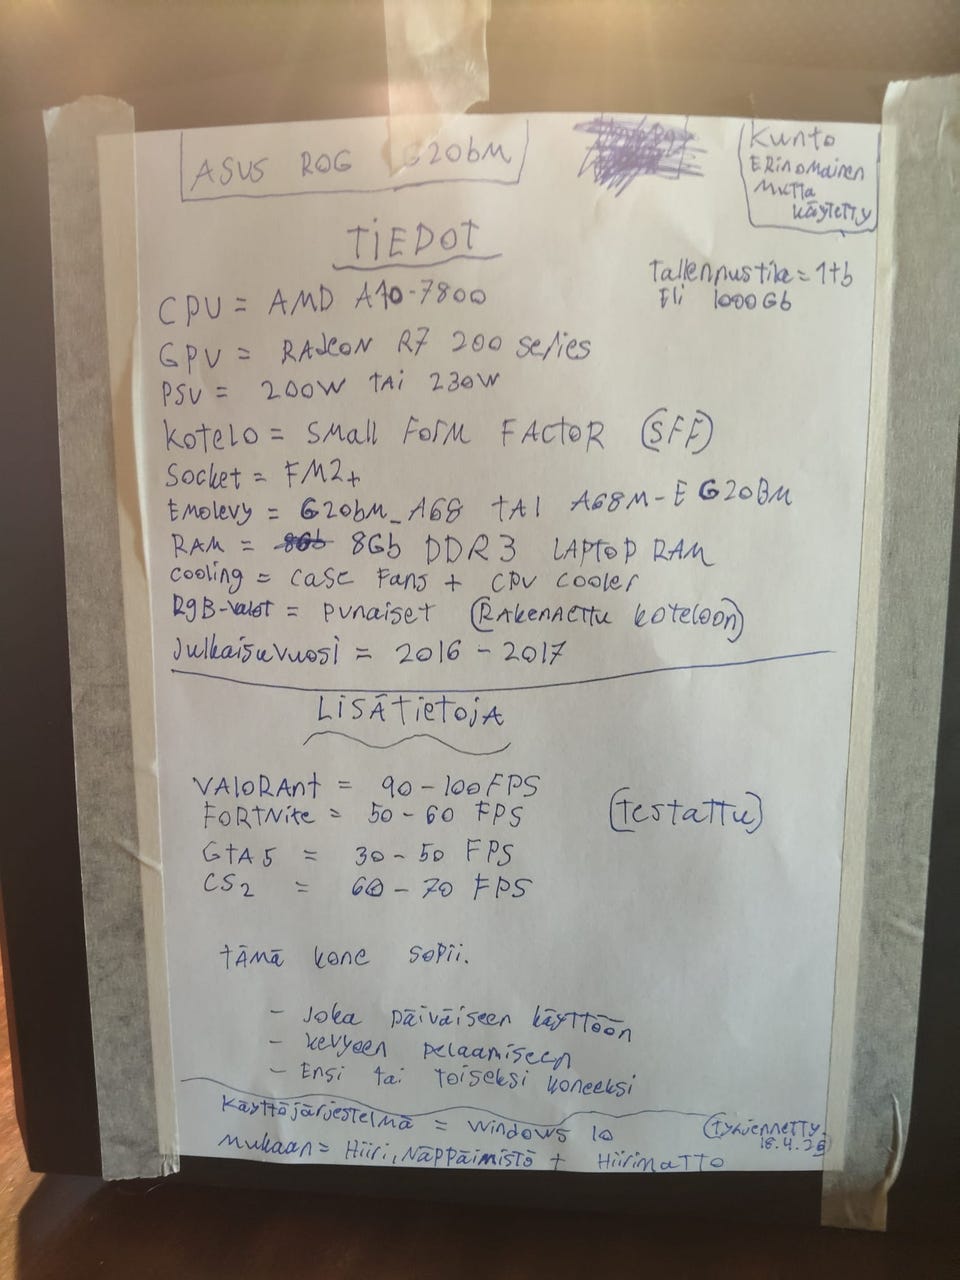 ASUS ROG G20bM
Kunto
ERinomainen
Mutta
käytetty
TIEDOT
Tallennustila = 1tb
Eli 1000Gb
CPU = AMD A10-7800
GPU = RADeON R7 200 series
PSU = 200W tai 230W
Kotelo = Small Form FACtoR (SFF)
Socket = FM2+
Emolevy = G20bM_A68 tAI A68M-E G20BM
RAM = 8Gb DDR3 LAPtoP RAM
Cooling = case Fans + CPU cooler
RgB-valot = punaiset (RAkennettu koteloon)
Julkaisuvuosi = 2016 - 2017
Lisätietoja
VALORAnt = 90-100 FPS
FoRtNite = 50-60 FPS
(testattu)
GtA5 = 30-50 FPS
CS2 = 60-70 FPS
tämä kone sopii.
- Joka päiväiseen käyttöön
- kevyeen pelaamiseen
- Ensi tai toiseksi koneeksi
Käyttöjärjestelmä = Windows 10
(tyhjennetty.
18.4.26)
Mukaan = Hiiri, Näppäimistö + Hiirimatto